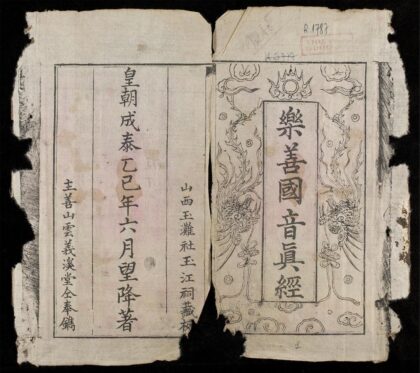 R.1787
樂善國音眞經
山西玉灘社玉江祠藏板
皇朝成泰乙巳年六月望降著
主善山雲義溪堂仝奉鐫